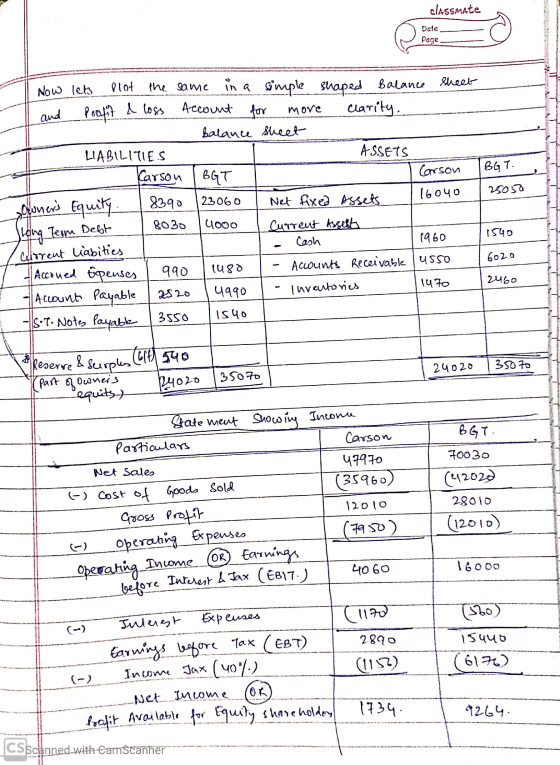 classmate
Date
Page
Now lets Plot the same in a simple shaped Balance Sheet
and Profit & loss Account for more clarity.
Balance Sheet
LIABILITIES ASSETS
Carson BGT Carson BGT.
Owner's Equity. 8390 23060 Net Fixed Assets 16040 25050
Long Term Debt 8030 4000 Current Assets
Current Liabities - Cash 1960 1540
- Accrued Expenses 990 1480 - Accounts Receivable 4550 6020
- Account Payable 2520 4990 - Inventories 1470 2460
- S.T. Notes Payable 3550 1540
* Reserve & Surplus (b/f) 540
(Part of owner's equity) 24020 35070 24020 35070
Statement Showing Income
Particulars Carson BGT.
Net Sales 47970 70030
(-) Cost of Goods Sold (35960) (42020)
Gross Profit 12010 28010
(-) Operating Expenses (7950) (12010)
Operating Income OR Earnings
before Interest & Tax (EBIT.) 4060 16000
(-) Interest Expenses (1170) (560)
Earnings before Tax (EBT) 2890 15440
(-) Income Tax (40%.) (1156) (6176)
Net Income OR
Profit Available for Equity shareholders 1734. 9264.
CS Scanned with CamScanner